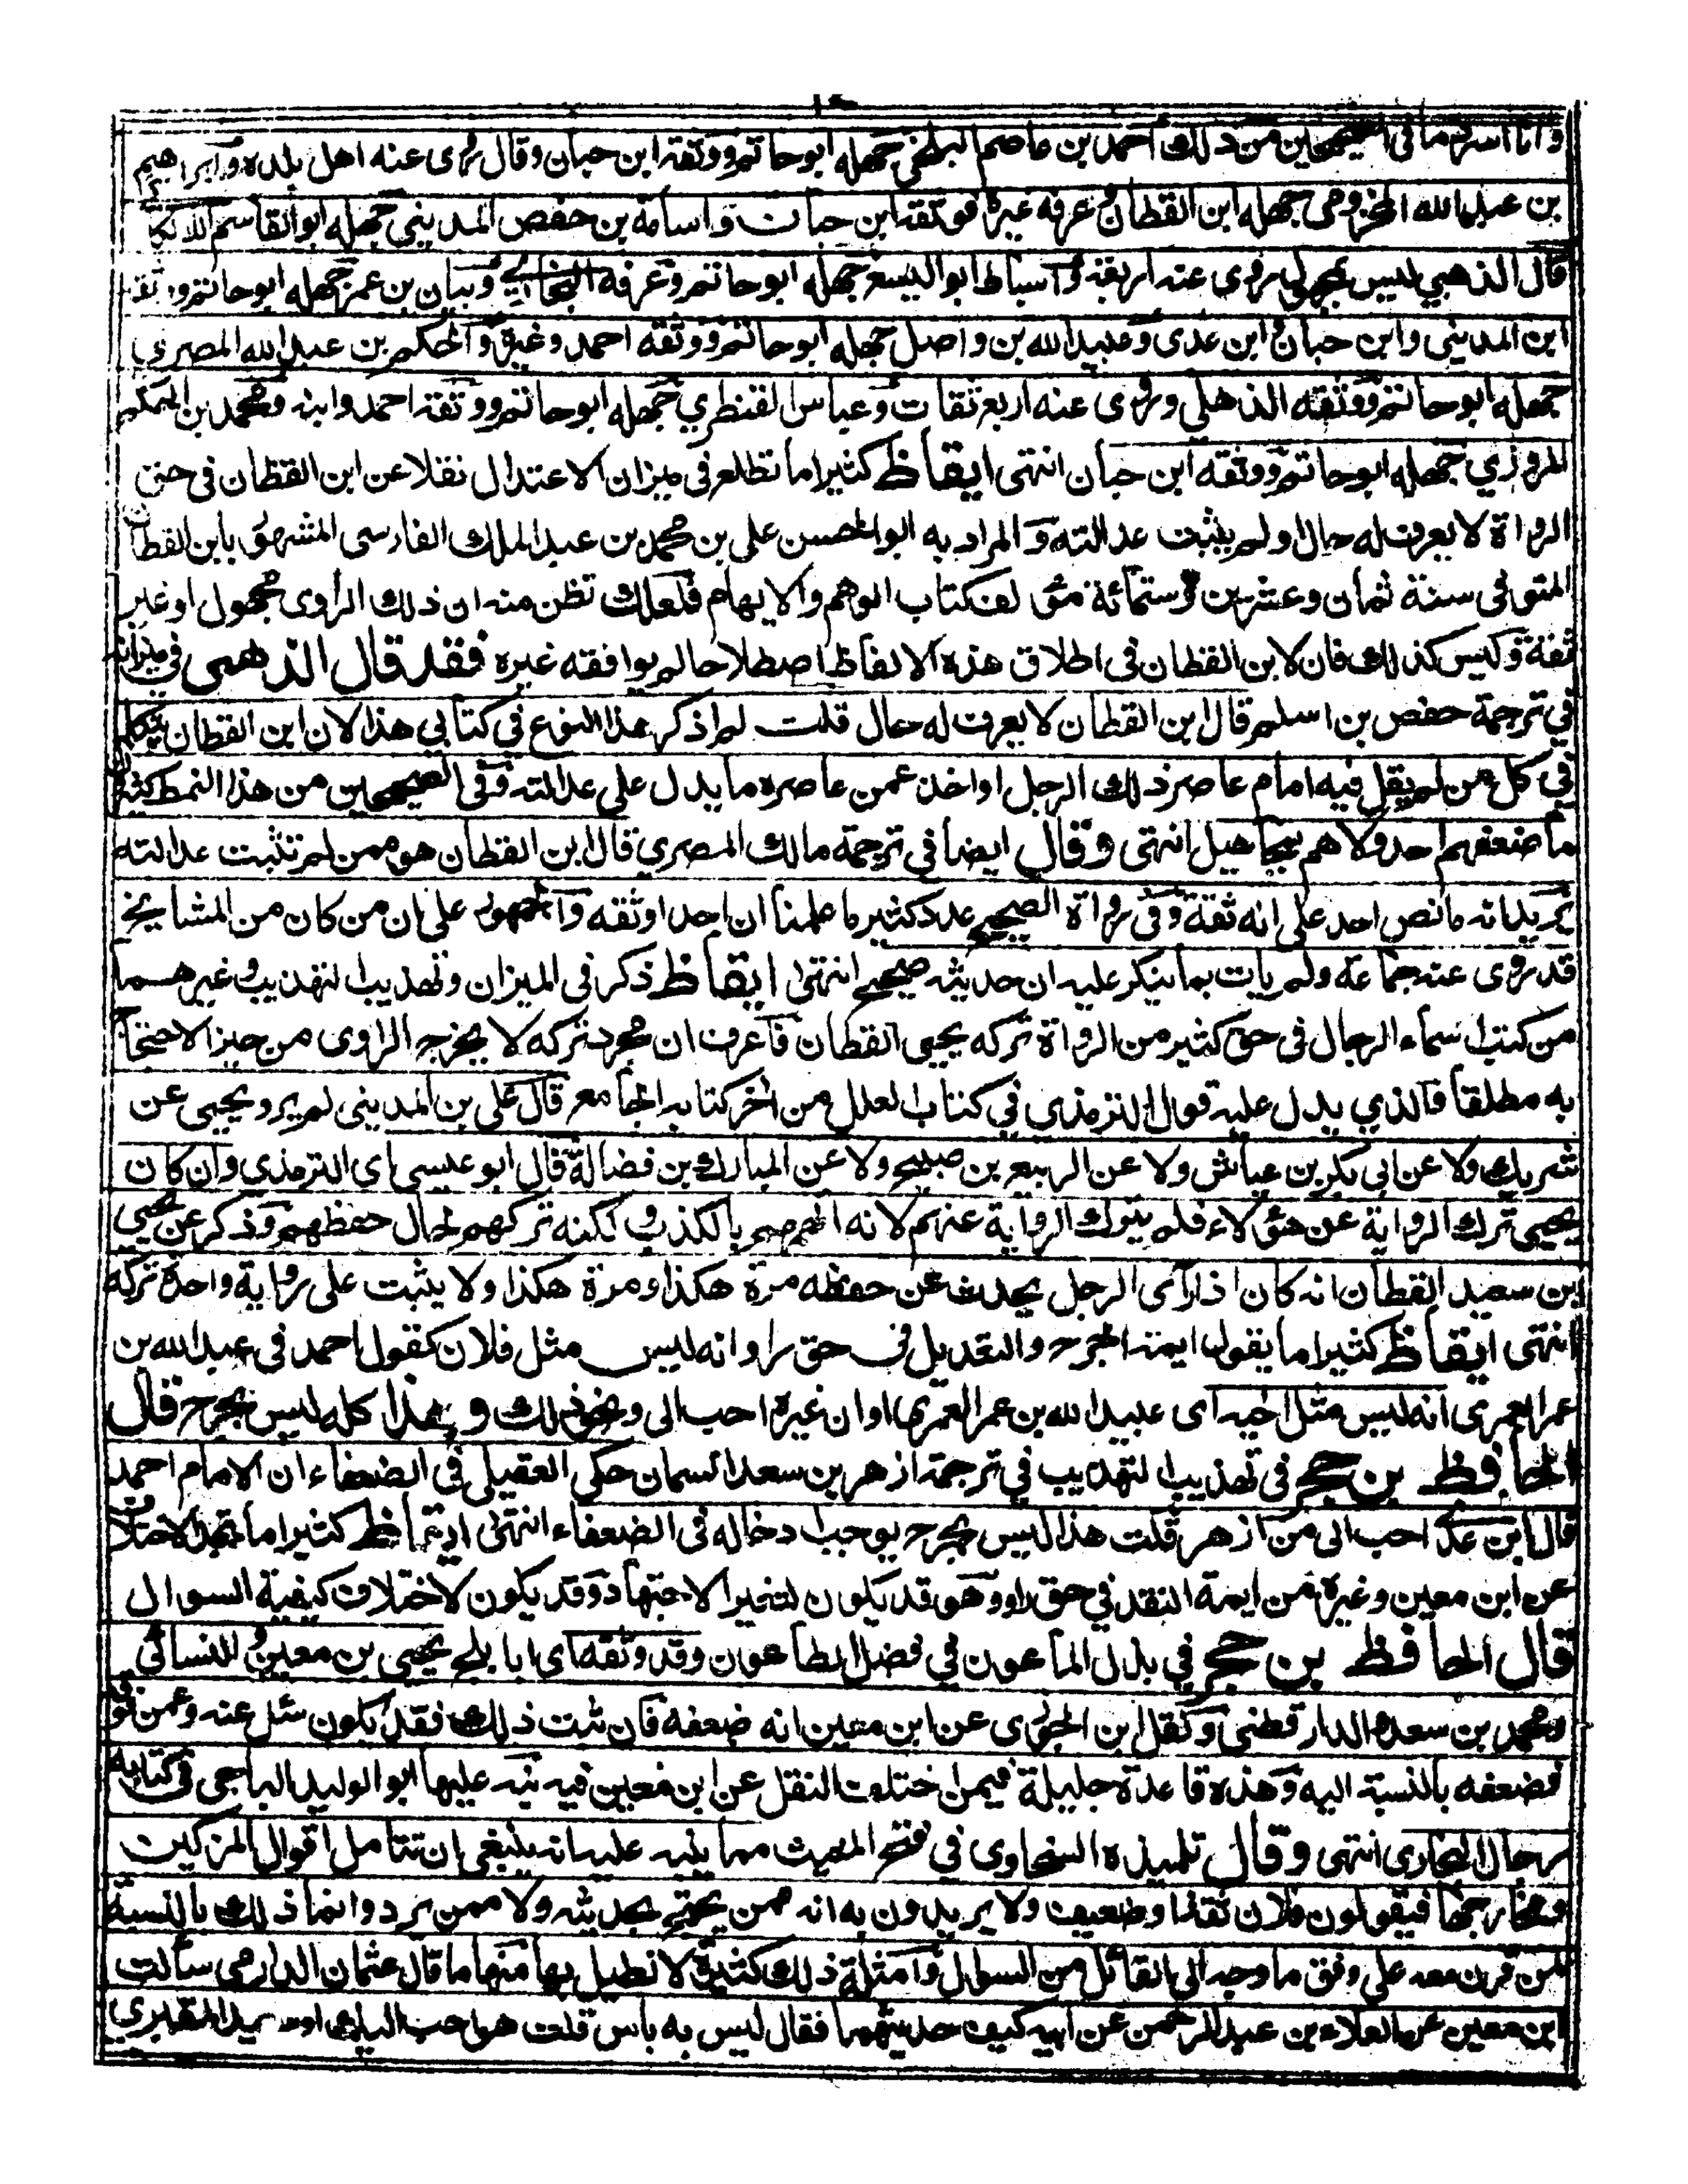 وانا اسرد ما فى الصحيحين من ذلك احمد بن عاصم البلخى جهله ابو حاتم ووثقه ابن حبان وقال روى عنه اهل بلده وابراهيم
بن عبد الله المخزومى جهله ابن القطان وعرفه غيره فوثقه ابن حبان واسامة بن حفص المدينى جهله ابو القاسم اللالكا
قال الذهبي ليس بمجهول روى عنه اربعة واسباط ابو اليسع جهله ابو حاتم وعرفه البخاري وبيان بن عمر جهله ابو حاتم ووثقه
ابن المدينى وابن حبان وابن عدى وعبيد الله بن واصل جهله ابو حاتم ووثقه احمد وغيره والحكم بن عبد الله المصرى
جهله ابو حاتم ووثقه الذهلى وروى عنه اربع ثقات وعباس القنطرى جهله ابو حاتم ووثقه احمد وابنه ومحمد بن الحكم
المروزي جهله ابو حاتم ووثقه ابن حبان انتهى ايقاظ كثيرا ما تطلع فى ميزان الاعتدال نقلا عن ابن القطان فى حق
الرواة لا يعرف له حال او لم يثبت عدالته والمراد به ابو الحسن على بن محمد بن عبد الملك الفارسى المشهور بابن القطان
المتوفى سنة ثمان وعشرين وستمائة مؤلف كتاب الوهم والايهام فلعلك تظن منه ان ذلك الراوى مجهول او غير
ثقة وليس كذلك فان لابن القطان فى اطلاق هذه الالفاظ اصطلاحا لم يوافقه غيره فقد قال الذهبى فى ميزانه
في ترجمة حفص بن اسلم قال ابن القطان لا يعرف له حال قلت لم اذكر هذا النوع في كتابي هذا لان ابن القطان يتكلم
في كل من لم يقل فيه امام عاصر ذلك الرجل او اخذ عمن عاصره ما يدل على عدالته وفى الصحيحين من هذا النمط كثيرون
ما ضعفهم احد ولا هم بمجاهيل انتهى وقال ايضا في ترجمة مالك المصري قال ابن القطان هو ممن لم تثبت عدالته
يريد انه ما نص احد على انه ثقة وفى رواة الصحيح عدد كثير ما علمنا ان احدا وثقه والجمهور على ان من كان من المشايخ
قد روى عنه جماعة ولم يات بما ينكر عليه ان حديثه صحيح انتهى ايقاظ ذكر فى الميزان وتهذيب التهذيب وغيرهما
من كتب اسماء الرجال فى حق كثير من الرواة تركه يحيى القطان فاعرف ان مجرد تركه لا يخرج الراوى من حيز الاحتجاج
به مطلقا فالذي يدل عليه قول الترمذى في كتاب العلل من اخر كتابه الجامع قال على بن المدينى لم يرو يحيى عن
شريك ولا عن ابى بكر بن عياش ولا عن الربيع بن صبيح ولا عن المبارك بن فضالة قال ابو عيسى اى الترمذي وان كان
يحيى ترك الرواية عن هؤلاء فلم يترك الرواية عنهم لانه اتهمهم بالكذب ولكنه تركهم لحال حفظهم وذكر عن يحيى
بن سعيد القطان انه كان اذا راى الرجل يحدث عن حفظه مرة هكذا ومرة هكذا ولا يثبت على رواية واحدة تركه
انتهى ايقاظ كثيرا ما يقول ايمة الجرح والتعديل فى حق راو انه ليس مثل فلان كقول احمد فى عبد الله بن
عمر العمرى انه ليس مثل اخيه اى عبيد الله بن عمر العمرى او ان غيره احب الى ونحو ذلك وهذا كله ليس بجرح قال
الحافظ بن حجر فى تهذيب التهذيب في ترجمة ازهر بن سعد السمان حكى العقيلى فى الضعفاء ان الامام احمد
قال ابن عدي احب الى من ازهر قلت هذا ليس بجرح يوجب ادخاله فى الضعفاء انتهى ايقاظ كثيرا ما تجد الاختلاف
عن ابن معين وغيره من ايمة النقد في حق راو وهو قد يكون لتغير الاجتهاد وقد يكون لاختلاف كيفية السوال
قال الحافظ بن حجر في بذل الماعون في فضل الطاعون وقد وثقه اى ابا بلج يحيى بن معين والنسائى
ومحمد بن سعد والدارقطنى ونقل ابن الجوزى عن ابن معين انه ضعفه فان ثبت ذلك فقد يكون سئل عنه وعمن فوقه
فضعفه بالنسبة اليه وهذه قاعدة جليلة فيمن اختلف النقل عن ابن معين فيه نبه عليها ابو الوليد الباجى فى كتابه
رجال البخارى انتهى وقال تلميذه السخاوى في فتح المغيث مما ينبه عليه انه ينبغى ان تتامل اقوال المزكين
ومخارجها فيقولون فلان ثقة او ضعيف ولا يريدون به انه ممن يحتج بحديثه ولا ممن يرد وانما ذلك بالنسبة
لمن قرن معه على وفق ما وجه الى القائل من السوال وامثلة ذلك كثيرة لا نطيل بها منها ما قال عثمان الدارمى سألت
ابن معين عن العلاء بن عبد الرحمن عن ابيه كيف حديثهما فقال ليس به باس قلت هو احب اليك او سعيد المقبري